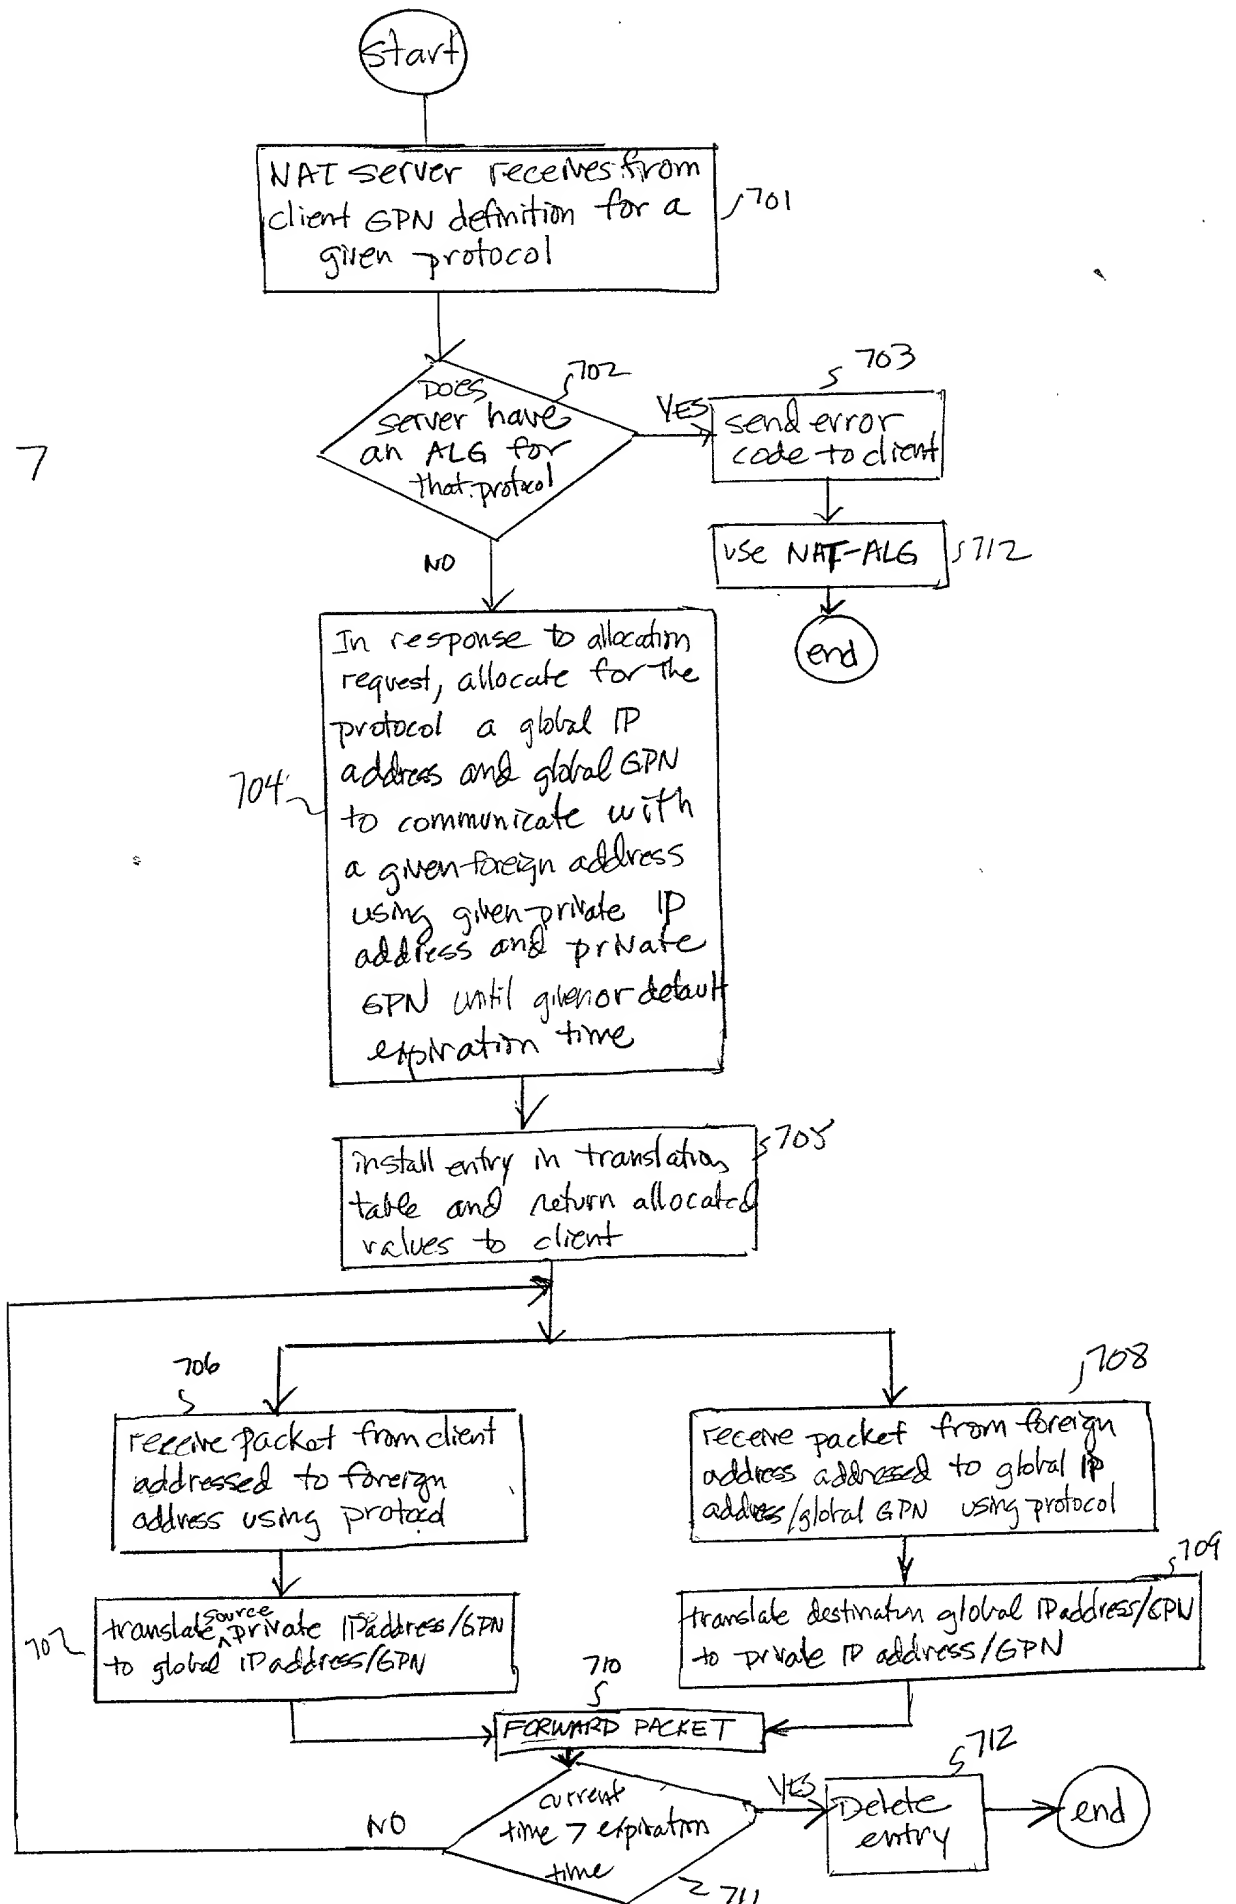 start
NAT server receives from
client GPN definition for a
given protocol
701
702
Does
server have
an ALG for
that protocol
YES
703
send error
code to client
use NAT-ALG
712
end
7
NO
In response to allocation
request, allocate for the
protocol a global IP
address and global GPN
to communicate with
a given foreign address
using given private IP
address and private
GPN until given or default
expiration time
704
705
install entry in translation
table and return allocated
values to client
706
receive packet from client
addressed to foreign
address using protocol
708
receive packet from foreign
address addressed to global IP
address/global GPN using protocol
707
source
translate private IP address/GPN
to global IP address/GPN
709
translate destination global IP address/GPN
to private IP address/GPN
710
FORWARD PACKET
current
time > expiration
time
711
NO
YES
712
Delete
entry
end